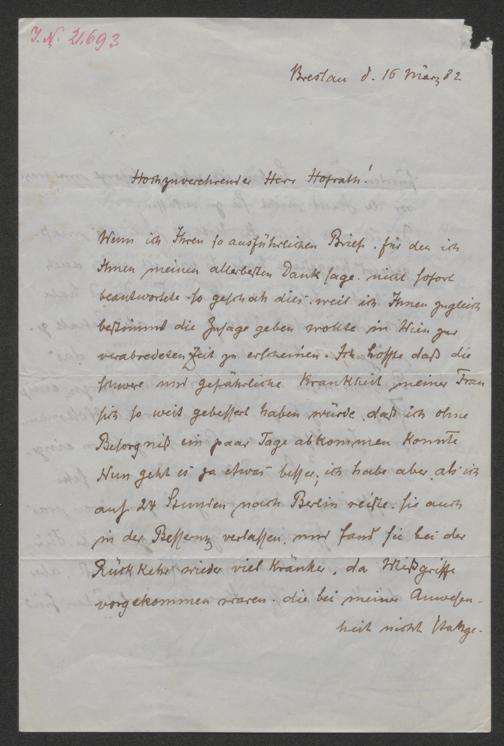 J.N. 21.693
Breslau d. 16 März 82
Hochzuverehrender Herr Hofrath!
Wenn ich Ihren so ausführlichen Brief, für den ich
Ihnen meinen allerbesten Dank sage, nicht sofort
beantwortete so geschah dies, weil ich Ihnen zugleich
bestimmt die Zusage geben wollte in Wien zur
verabredeten Zeit zu erscheinen. Ich hoffte daß die
schwere und gefährliche Krankheit meiner Frau
sich so weit gebessert haben würde, daß ich ohne
Besorgniß ein paar Tage abkommen konnte
Nun geht es ja etwas besser, ich habe aber, als ich
auf 24 Stunden nach Berlin reiste, sie auch
in der Besserung verlassen, und fand sie bei der
Rückkehr wieder viel kränker, da Mißgriffe
vorgekommen waren, die bei meiner Anwesen-
heit nicht stattge-